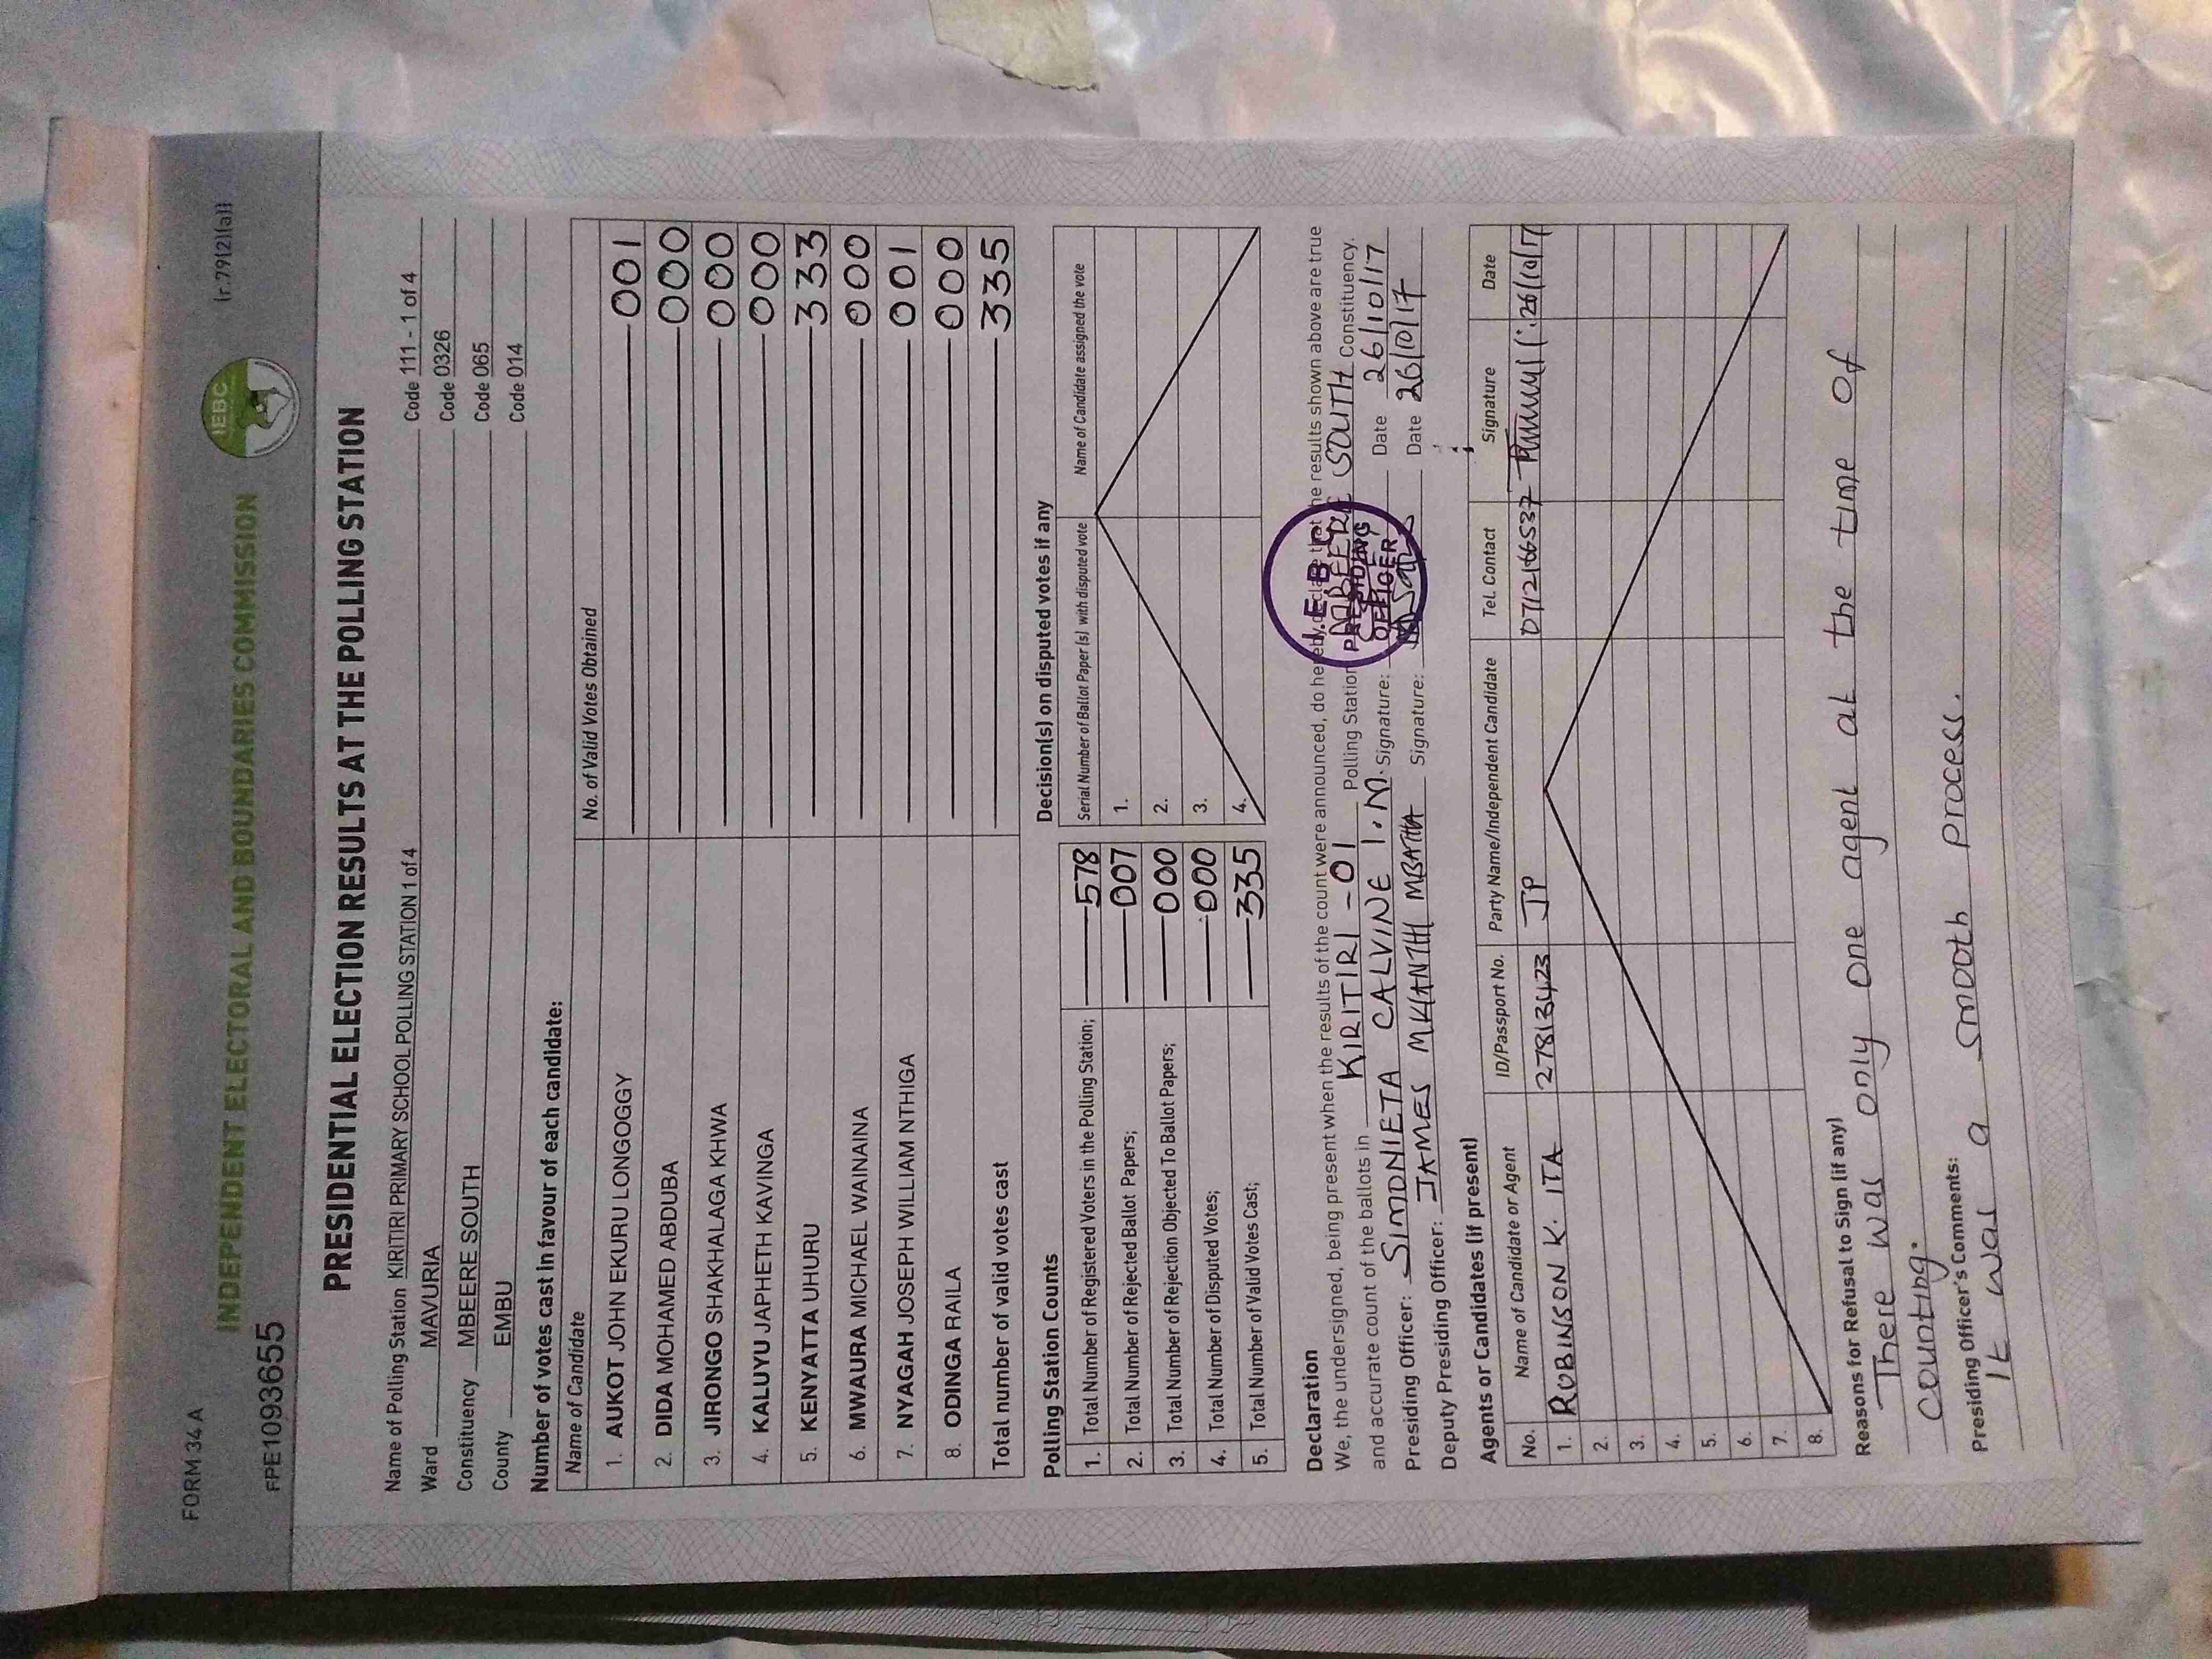 FORM 34 A (r.79(2)(a))
INDEPENDENT ELECTORAL AND BOUNDARIES COMMISSION
IEBC
FPE1093655
PRESIDENTIAL ELECTION RESULTS AT THE POLLING STATION
Name of Polling Station KIRITIRI PRIMARY SCHOOL POLLING STATION 1 of 4 Code 111 - 1 of 4
Ward MAVURIA Code 0326
Constituency MBEERE SOUTH Code 065
County EMBU Code 014
Number of votes cast in favour of each candidate:
Name of Candidate No. of Valid Votes Obtained
1. AUKOT JOHN EKURU LONGOGGY 001
2. DIDA MOHAMED ABDUBA 000
3. JIRONGO SHAKHALAGA KHWA 000
4. KALUYU JAPHETH KAVINGA 000
5. KENYATTA UHURU 333
6. MWAURA MICHAEL WAINAINA 000
7. NYAGAH JOSEPH WILLIAM NTHIGA 001
8. ODINGA RAILA 000
Total number of valid votes cast 335
Polling Station Counts
1. Total Number of Registered Voters in the Polling Station; 578
2. Total Number of Rejected Ballot Papers; 007
3. Total Number of Rejection Objected To Ballot Papers; 000
4. Total Number of Disputed Votes; 000
5. Total Number of Valid Votes Cast; 335
Decision(s) on disputed votes if any
Serial Number of Ballot Paper (s) with disputed vote Name of Candidate assigned the vote
1.
2.
3.
4.
Declaration
We, the undersigned, being present when the results of the count were announced, do hereby declare that the results shown above are true
and accurate count of the ballots in KIRITIRI - 01 Polling Station MBEERE SOUTH Constituency.
Presiding Officer: SIMONIETA CALVINE I.M. Signature: Date 26/10/17
Deputy Presiding Officer: JAMES MKIANTHI MBATHA Signature: Date 26/10/17
I.E.B.C
PRESIDING
OFFICER
Agents or Candidates (if present)
No. Name of Candidate or Agent ID/Passport No. Party Name/Independent Candidate Tel. Contact Signature Date
1. ROBINSON K. ITA 27813423 JP 0712166537 26/10/17
2.
3.
4.
5.
6.
7.
8.
Reasons for Refusal to Sign (if any)
There was only one agent at the time of
counting.
Presiding Officer's Comments:
It was a smooth process.